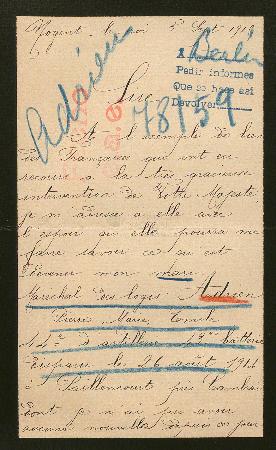 Nogent, le 5 Sept 191
Adrien
A Berlin
Pedir informes
Que se hace así
Devolver
78159
Sire
A l'exemple de bien
des Françaises qui ont eu
recours à la très gracieuse
intervention de Votre Majesté
je m'adresse a elle avec
l'espoir qu'elle pourra me
faire savoir ce qu'est
devenu mon mari
Maréchal des logis Adrien
Pierre Marie
d'artillerie batterie
Disparu le 26 août 191
à Saillencourt près Cambrai
dont je n'ai pu avoir
aucune nouvelle depuis ce jour